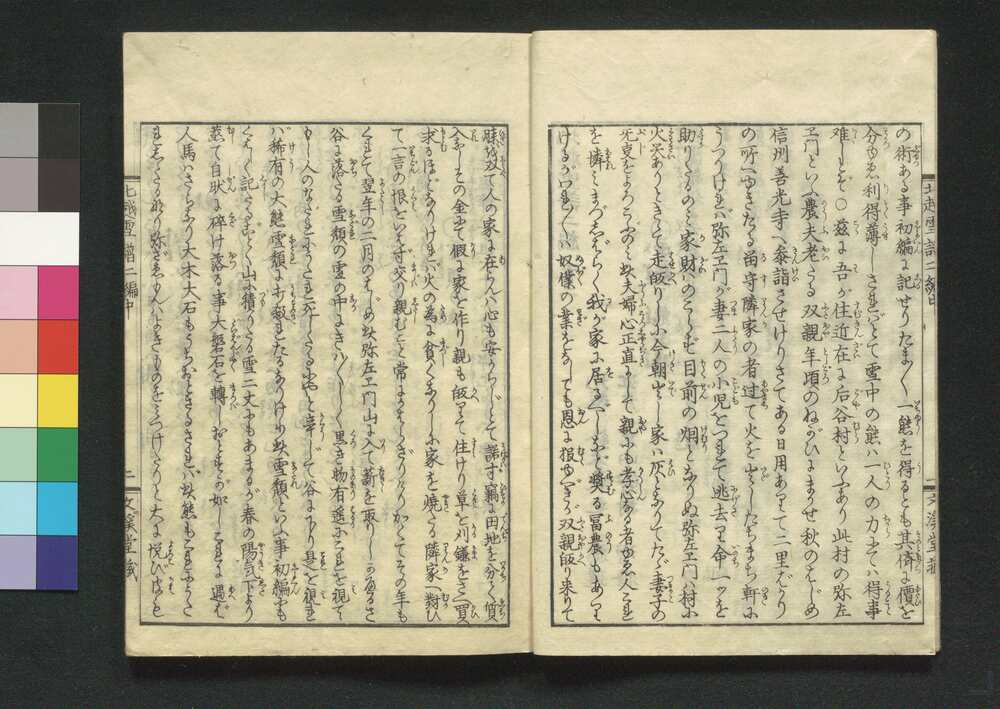 の術ある事初編に記せりたま〳〵一熊を得るとも其儕に價を
分ゆゑ利得薄しさればとて雪中の熊は一人の力にては得事
難しとぞ○茲に吾が住近在に后谷村といふあり此村の弥左
ヱ門といふ農夫老たる双親年頃のねがひにまかせ秋のはじめ
信州善光寺へ参詣させけりさてある日用ありて二里ばかり
の所へゆきたる留守隣家の者過て火を出したちまち軒に
うつりければ弥左ヱ門が妻二人の小児をつれて逃去り命一ツを
助りたるのみ家財はのこらず目前の烟となりぬ弥左ヱ門は村に
火災ありときゝて走皈りしに今朝出し家は灰となりてたゞ妻子の
无㕝をよろこぶのみ此夫婦心正直にして親にも孝心なる者ゆゑ人これ
を憐みまづしばらく我が家に居るべしなど奨る冨農もあり
けるがわれ〳〵は奴僕の業をなしても恩に報ゆべきが双親皈り来りて
膝を双て人の家に在らんは心も安からじとて諾ず竊に田地を分て質
入なしその金にて假に家を作り親も皈りて住けり草を刈鎌をさへ買
求るほどなりければ火の為に貧くなりしに家を焼たる隣家へ対ひ
て一言の恨をいはず交り親むこと常にかはらざりけりかくてその年も
くれて翌年の二月のはじめ此弥左ヱ門山に入て薪を取りしかへるさ
谷に落たる雪頽の雪の中にきは〳〵しく黒き物有遥にこれを視て
もし人のなだれにうたれ死したるにやと辛じて谷に下り是を視れ
ば稀有の大熊雪頽に打殺されたるなりけり此雪頽といふ事初編にも
くはしく記したるごとく山に積りたる雪二丈にもあまるが春の陽気下より
蒸て自然に砕け落る事大磐石を轉しおとすが如しこれに遇ば
人馬はさらなり大木大石もうちおとさるされば此熊もこれにうたれ
しゝたるなり弥左ヱ門はよきものをみつけたりと大に悦び皮と
北越雪譜二編中
二
文溪堂藏